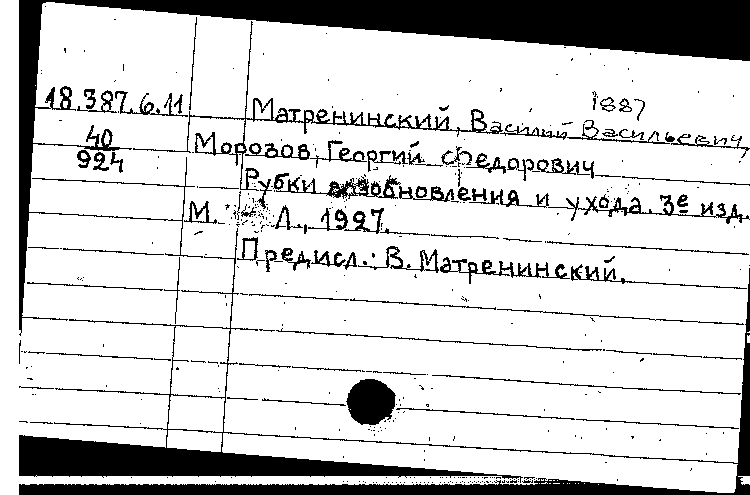 1887
18.387.6.11 Матренинский, Василий Васильевич,
40 Морозов, Георгий Федорович
924 Рубки возобновления и ухода. 3е изд.
М. - Л., 1927.
Предисл.: В. Матренинский.